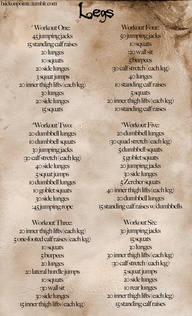 backonpointe.tumblr.com
Legs
Workout One:
45 jumping jacks
15 standing calf raises
20 lunges
10 squats
20 side lunges
3 squat jumps
20 inner thigh lifts (each leg)
20 lunges
20 side lunges
15 squats
Workout Two:
20 dumbbell lunges
10 dumbbell squats
30 jumping jacks
30 calf stretch (each leg)
40 side lunges
5 squat jumps
10 dumbbell lunges
10 goblet squats
30 side lunges
:45 jumping rope
Workout Three:
20 inner thigh lifts (each leg)
5 one-footed calf raises (each leg)
10 squats
5 burpees
20 lunges
20 lateral hurdle jumps
10 squats
:30 wall sit
30 side lunges
15 inner thigh lifts (each leg)
Workout Four:
50 jumping jacks
10 squats
:20 wall sit
2 burpees
:30 calf stretch (each leg)
40 lunges
10 standing calf raises
10 squats
15 inner thigh lifts (each leg)
20 lunges
Workout Five:
20 dumbbell lunges
:30 quad stretch (each leg)
5 dumbbell squats
5 goblet squats
20 jumping jacks
30 side lunges
5 Zercher squats
40 inner thigh lifts (each leg)
20 dumbbell lunges
15 standing calf raises w/dumbbells
Workout Six:
30 jumping jacks
10 squats
30 lunges
10 inner thigh lifts (each leg)
:30 calf stretch (each leg)
5 squat jumps
20 side lunges
10 rear lunges
20 inner thigh lifts (each leg)
15 standing calf raises